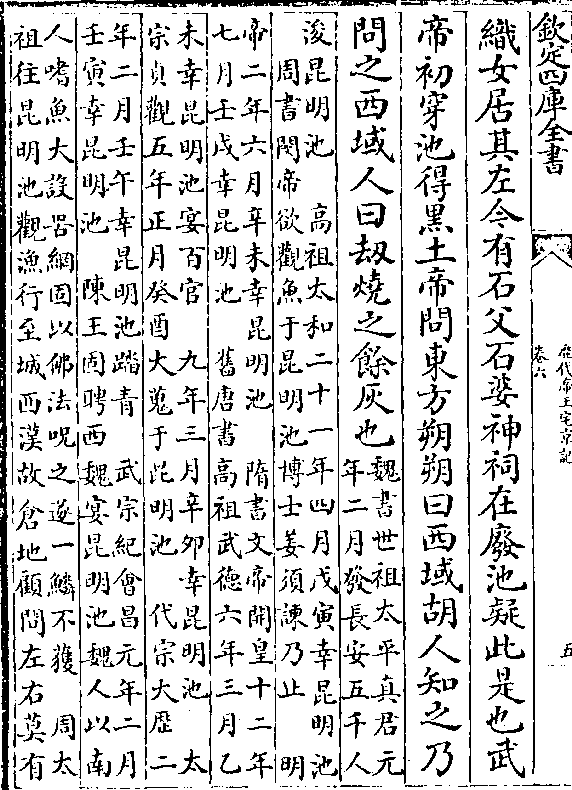 欽定四庫全書
歷代帝王宅京記
卷六
五
織女居其左今有石父石婆神祠在廢池疑此是也武
帝初穿池得黑土帝問東方朔朔曰西域胡人知之乃
問之西域人曰刼燒之餘灰也
魏書世祖太平真君元
年二月發長安五千人
浚昆明池　高祖太和二十一年四月戊寅幸昆明池
周書閔帝欲觀魚于昆明池博士姜須諫乃止　明
帝二年六月辛未幸昆明池　隋書文帝開皇十二年
七月壬戌幸昆明池　舊唐書高祖武德六年三月乙
未幸昆明池宴百官　九年三月辛卯幸昆明池　太
宗貞觀五年正月癸酉大蒐于昆明池　代宗大歴二
年二月壬午幸昆明池踏青　武宗紀會昌元年二月
壬寅幸昆明池　陳王固聘西魏宴昆明池魏人以南
人嗜魚大設罟網固以佛法呪之遂一鱗不獲　周太
祖往昆明池觀漁行至城西漢故倉地顧問左右莫有